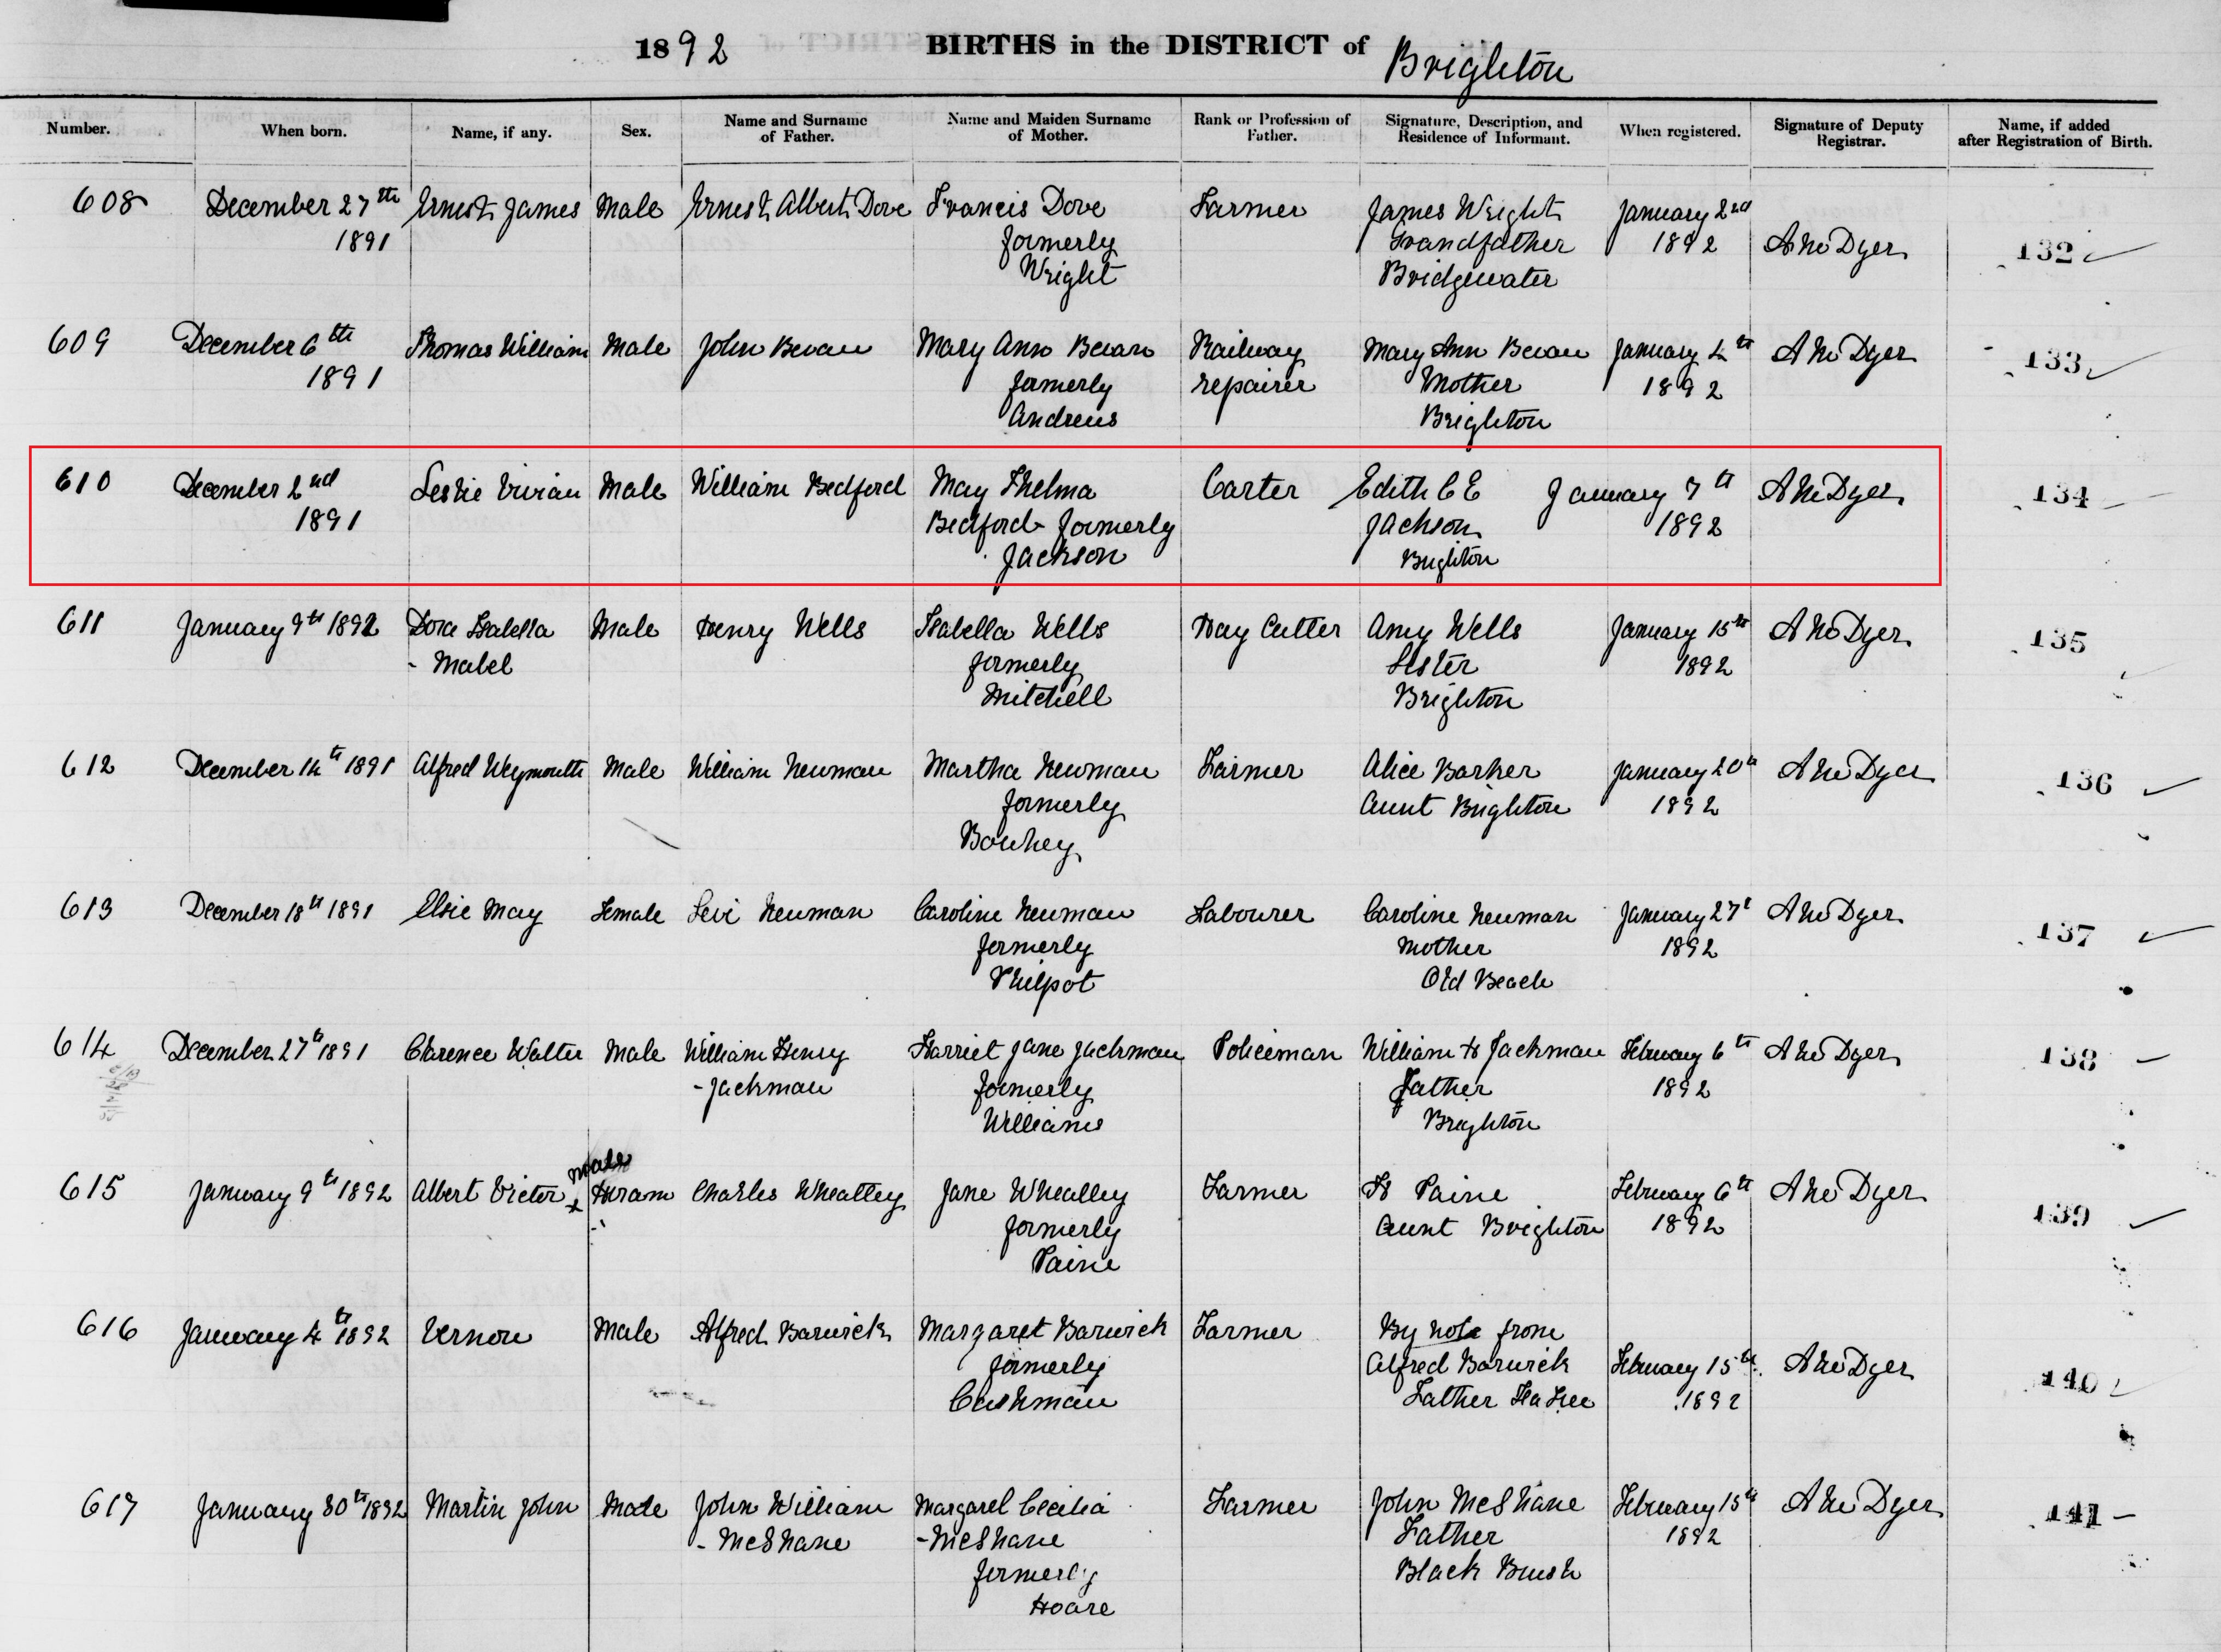 1892 BIRTHS in the DISTRICT of Brighton
Number. When born. Name, if any. Sex. Name and Surname of Father. Name and Maiden Surname of Mother. Rank or Profession of Father. Signature, Description, and Residence of Informant. When registered. Signature of Deputy Registrar. Name, if added after Registration of Birth.
608 December 27th Ernest James Male Ernest Albert Dove Francis Dove Farmer James Wright January 2nd
1891 formerly Grandfather 1892 Dyer 132
Wright Bridgewater
609 December 6th Thomas William Male John Bevan Mary Ann Bevan Railway Mary Ann Bevan January 4th Dyer 133
1891 formerly repairer Mother 1892
Andrews Brighton
610 December 2nd Leslie Vivian Male William Bedford May Thelma Carter Edith C E January 7th Dyer 134
1891 Bedford formerly Jackson 1892
Jackson Brighton
611 January 9th 1892 Dora Isabella Male Henry Wells Isabella Wells Hay Cutter Amy Wells January 15th Dyer 135
- Mabel formerly Sister 1892
Mitchell Brighton
612 December 14th 1891 Alfred Weymouth Male William Newman Martha Newman Farmer Alice Barker January 20th Dyer 136
formerly Aunt Brighton 1892
613 December 18th 1891 Elsie May Female Levi Newman Caroline Newman Labourer Caroline Newman January 27t Dyer 137
formerly Mother 1892
Philpot Old Beach
614 December 27th 1891 Clarence Walter Male William Henry Harriet Jane Jackman Policeman William H Jackman February 6th Dyer 138
- Jackman formerly Father 1892
Williams Brighton
Male
615 January 9th 1892 Albert Victor x Hiram Charles Wheatley Jane Wheatley Farmer H Paine February 6th Dyer 139
formerly Aunt Brighton 1892
Paine
616 January 4th 1892 Vernon Male Alfred Barwick Margaret Barwick Farmer By note from
formerly Alfred Barwick February 15th Dyer 140
Cashman Father Tea Tree 1892
617 January 30th 1892 Martin John Male John William Margaret Cecilia Farmer John McShane February 15th Dyer 141
- McShane - McShane Father 1892
formerly Black Brush
Hoare